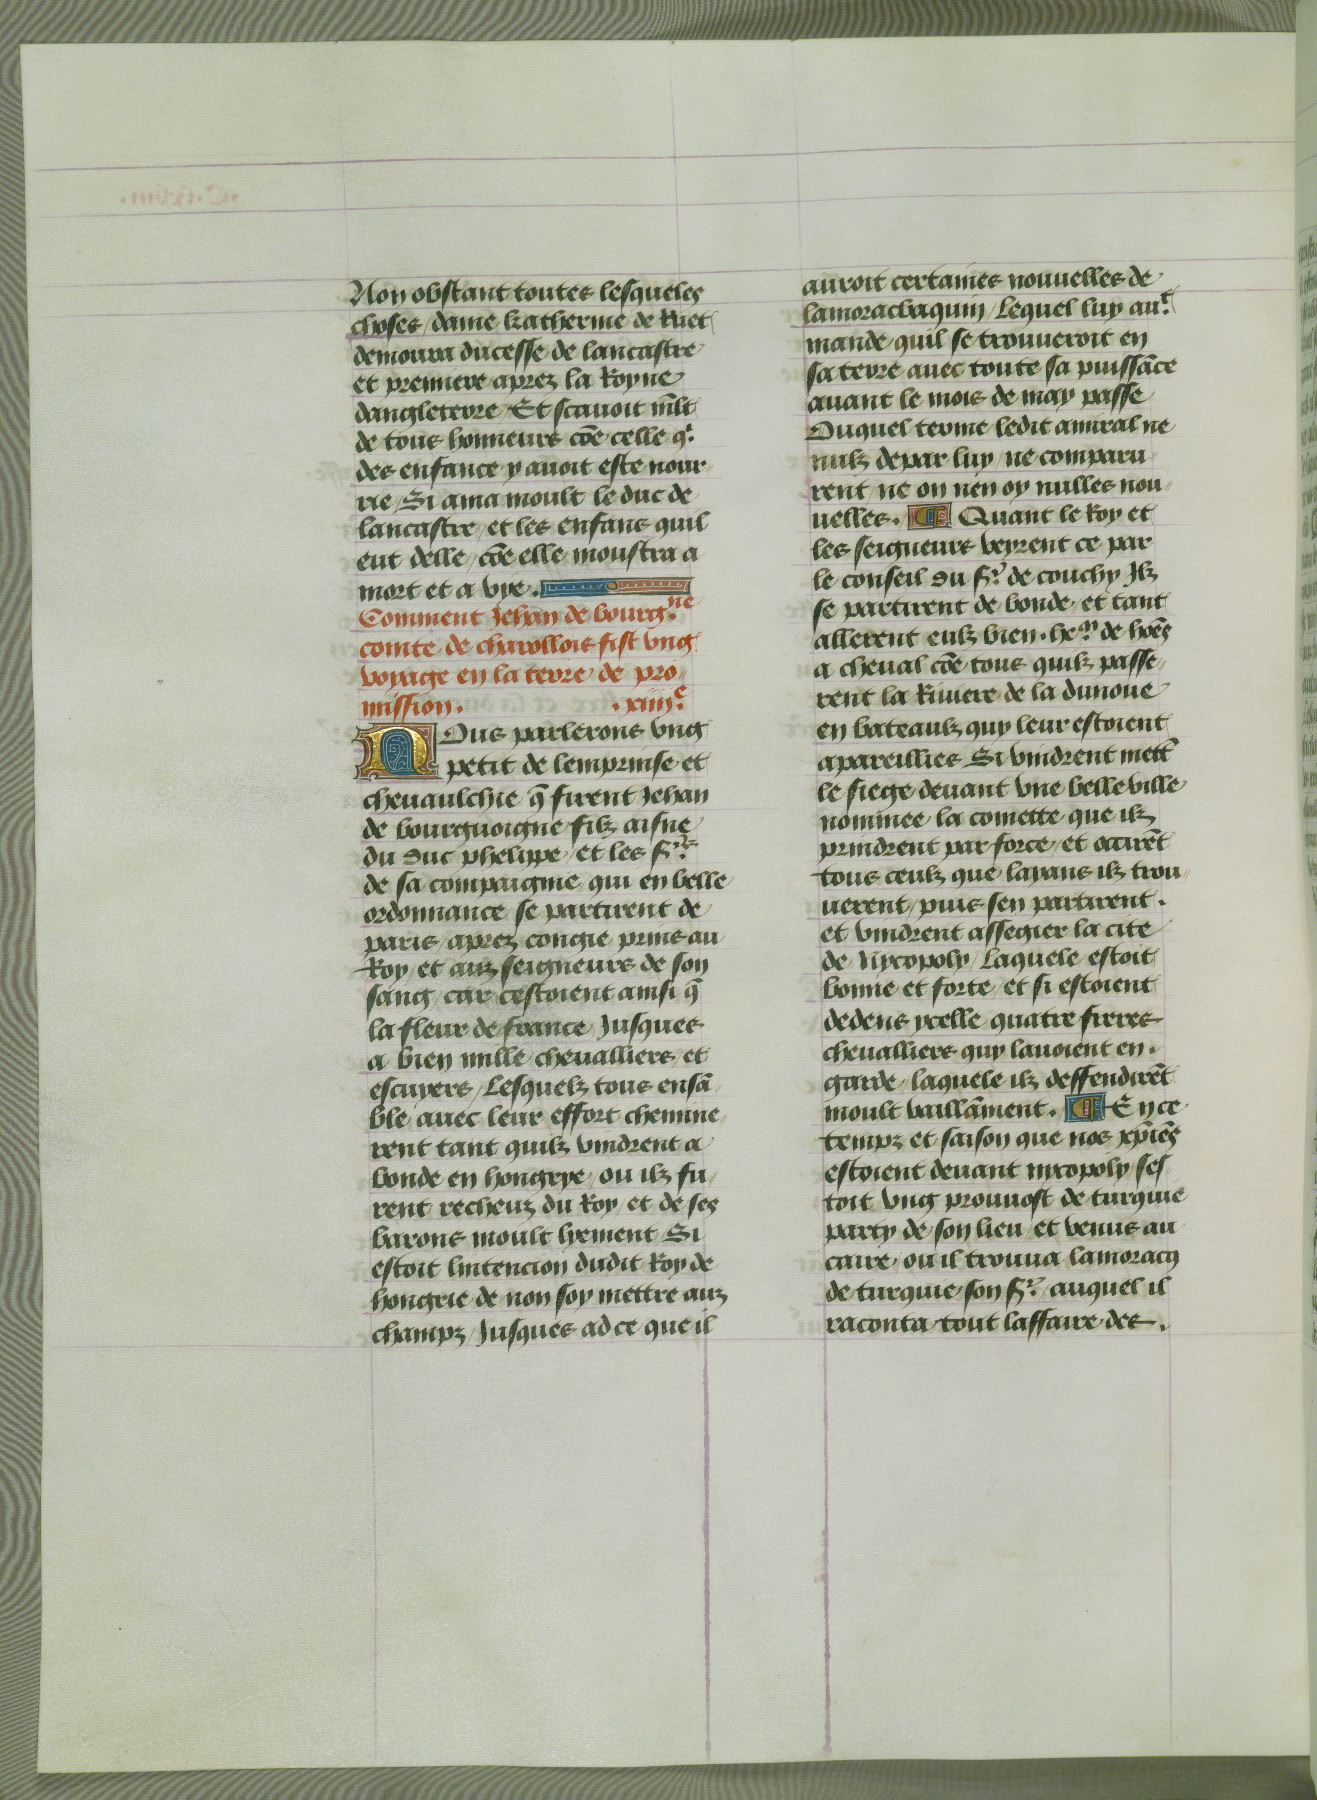 Non obstant toutes lesqueles
choses / dame katherine de Ruet
demoura ducesse de lancastre
et premiere aprez la Royne
dangleterre / Et scauoit ml̄t
de tous honneurs cōe celle qͥ.
des enfance y auoit este nour-
rie / Si ama moult le duc de
lancastre / et les enfans quil
eut delle / cōe elle monstra a
mort et a vye.
Comment Jehan de bourg.ⁿᵉ
comte de charollois fist vng
voyage en la terre de pro-
mission. .xiiijᵉ.
NOus parlerons vng
petit de lemprinse et
cheuaulchie q̄ firent Jehan
de bourguoigne filz aisne
du duc phelippe / et les Sʳˢ.
de sa compaignie qui en belle
ordonnance se partirent de
paris / aprez congie prins au
Roy / et aux seigneurs de son
sang / car cestoient ainsi q̄
la fleur de france Jusques
a bien mille cheualliers et
escuyers / Lesquelz tous ensā-
ble auec leur effort chemine-
rent tant quilz vindrent a
bonde en hongrye / ou ilz fu-
rent recheuz du Roy et de ses
barons moult lyement Si
estoit lintencion dudit Roy de
hongrie de non soy mettre aux
champz / Jusques ad ce que il
auroit certaines nouuelles de
lamoracbaquin / Lequel luy auᵗ.
mande / quil se trouueroit en
sa terre auec toute sa puissāce
auant le mois de may passe
Ouquel terme ledit amiral ne
nulz de par luy / ne comparu-
rent / ne on nen oy nulles nou-
uelles. Quant le Roy et
les seigneurs veyrent ce par
le conseil du Sʳ. de couchy Jlz
se partirent de bonde / et tant
allerent eulz bien .lxᵐ. de hōes
a cheual cōe tous quilz passe-
rent la Riuiere de la dunoue
en bateaulz quy leur estoient
apareillies Si vindrent mettʳ
le siege deuant vne belle ville
nommee la comette que ilz
prindrent par force / et ocirēt
tous ceulz que layans ilz trou-
uerent / puis sen partirent.
et vindrent assegier la cite
de Nycopoly / Laquele estoit
bonne et forte / et si estoient
dedens ycelle quatre freres
cheualliers quy lauoient en.
garde / laquele ilz deffendirēt
moult vaillāment. En ce
tempz et saison que nos xp̄iēs
estoient deuant nycopoly / ses-
toit vng prouuost de turquie
party de son lieu / et venus au
caire / ou il trouua lamoracq
de turquie son Sʳ. / auquel il
raconta tout laffaire des.